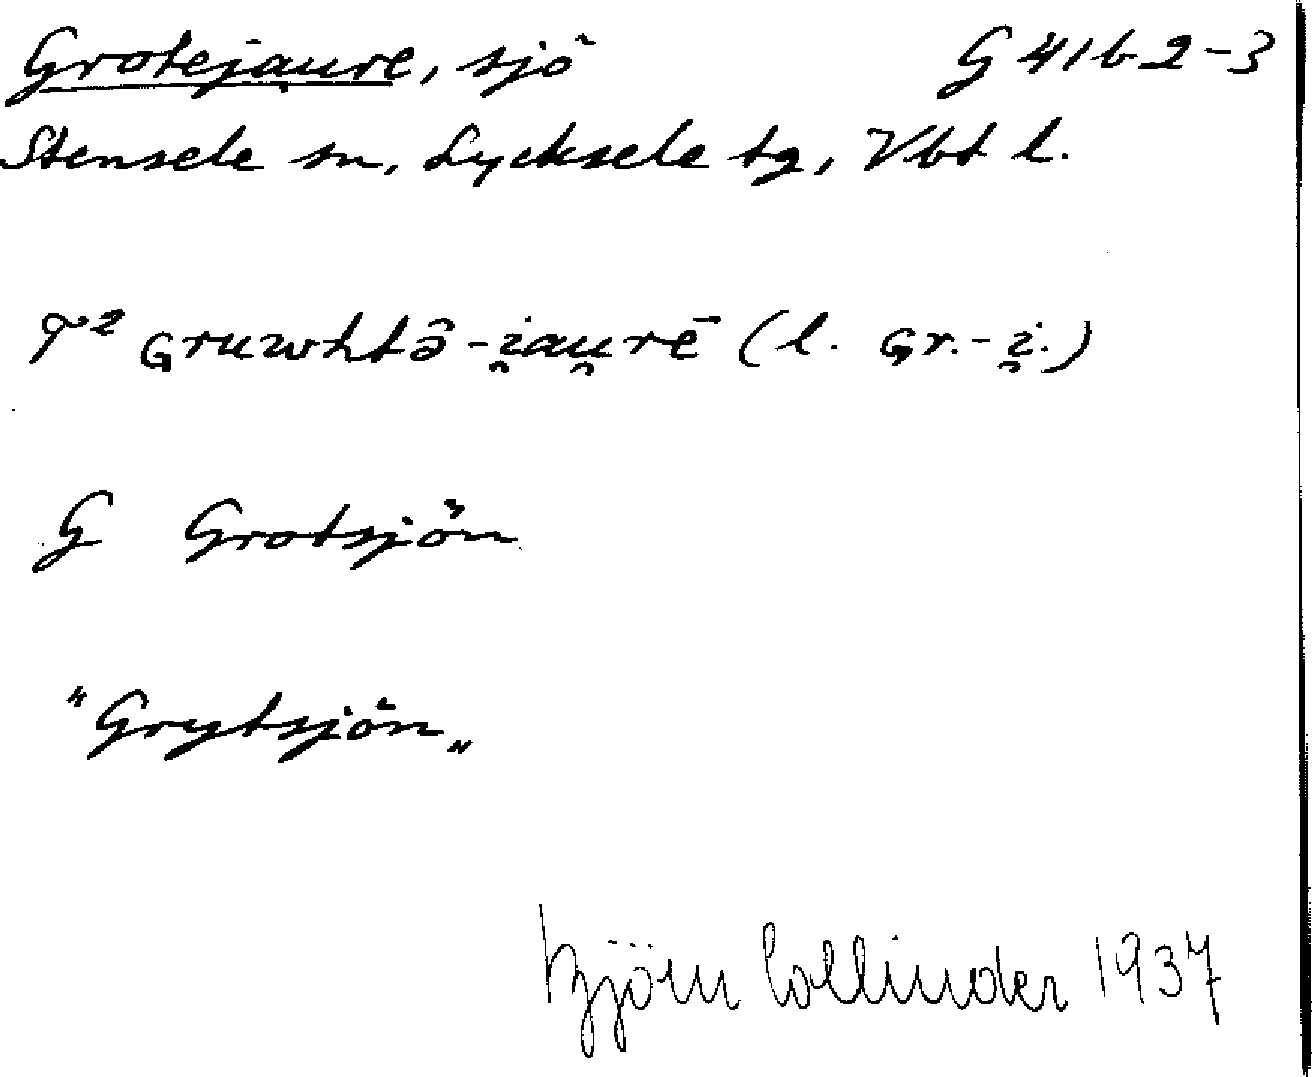 Grotejaure, sjö G 41 b 2-3
Stensele sn, Lycksele tg, Vbt l.
T² ɢruwhtə̂-i̯au̯rē (l. ɢr.-i̯.)
G Grotsjön
"Grytsjön„
Björn Collinder 1937